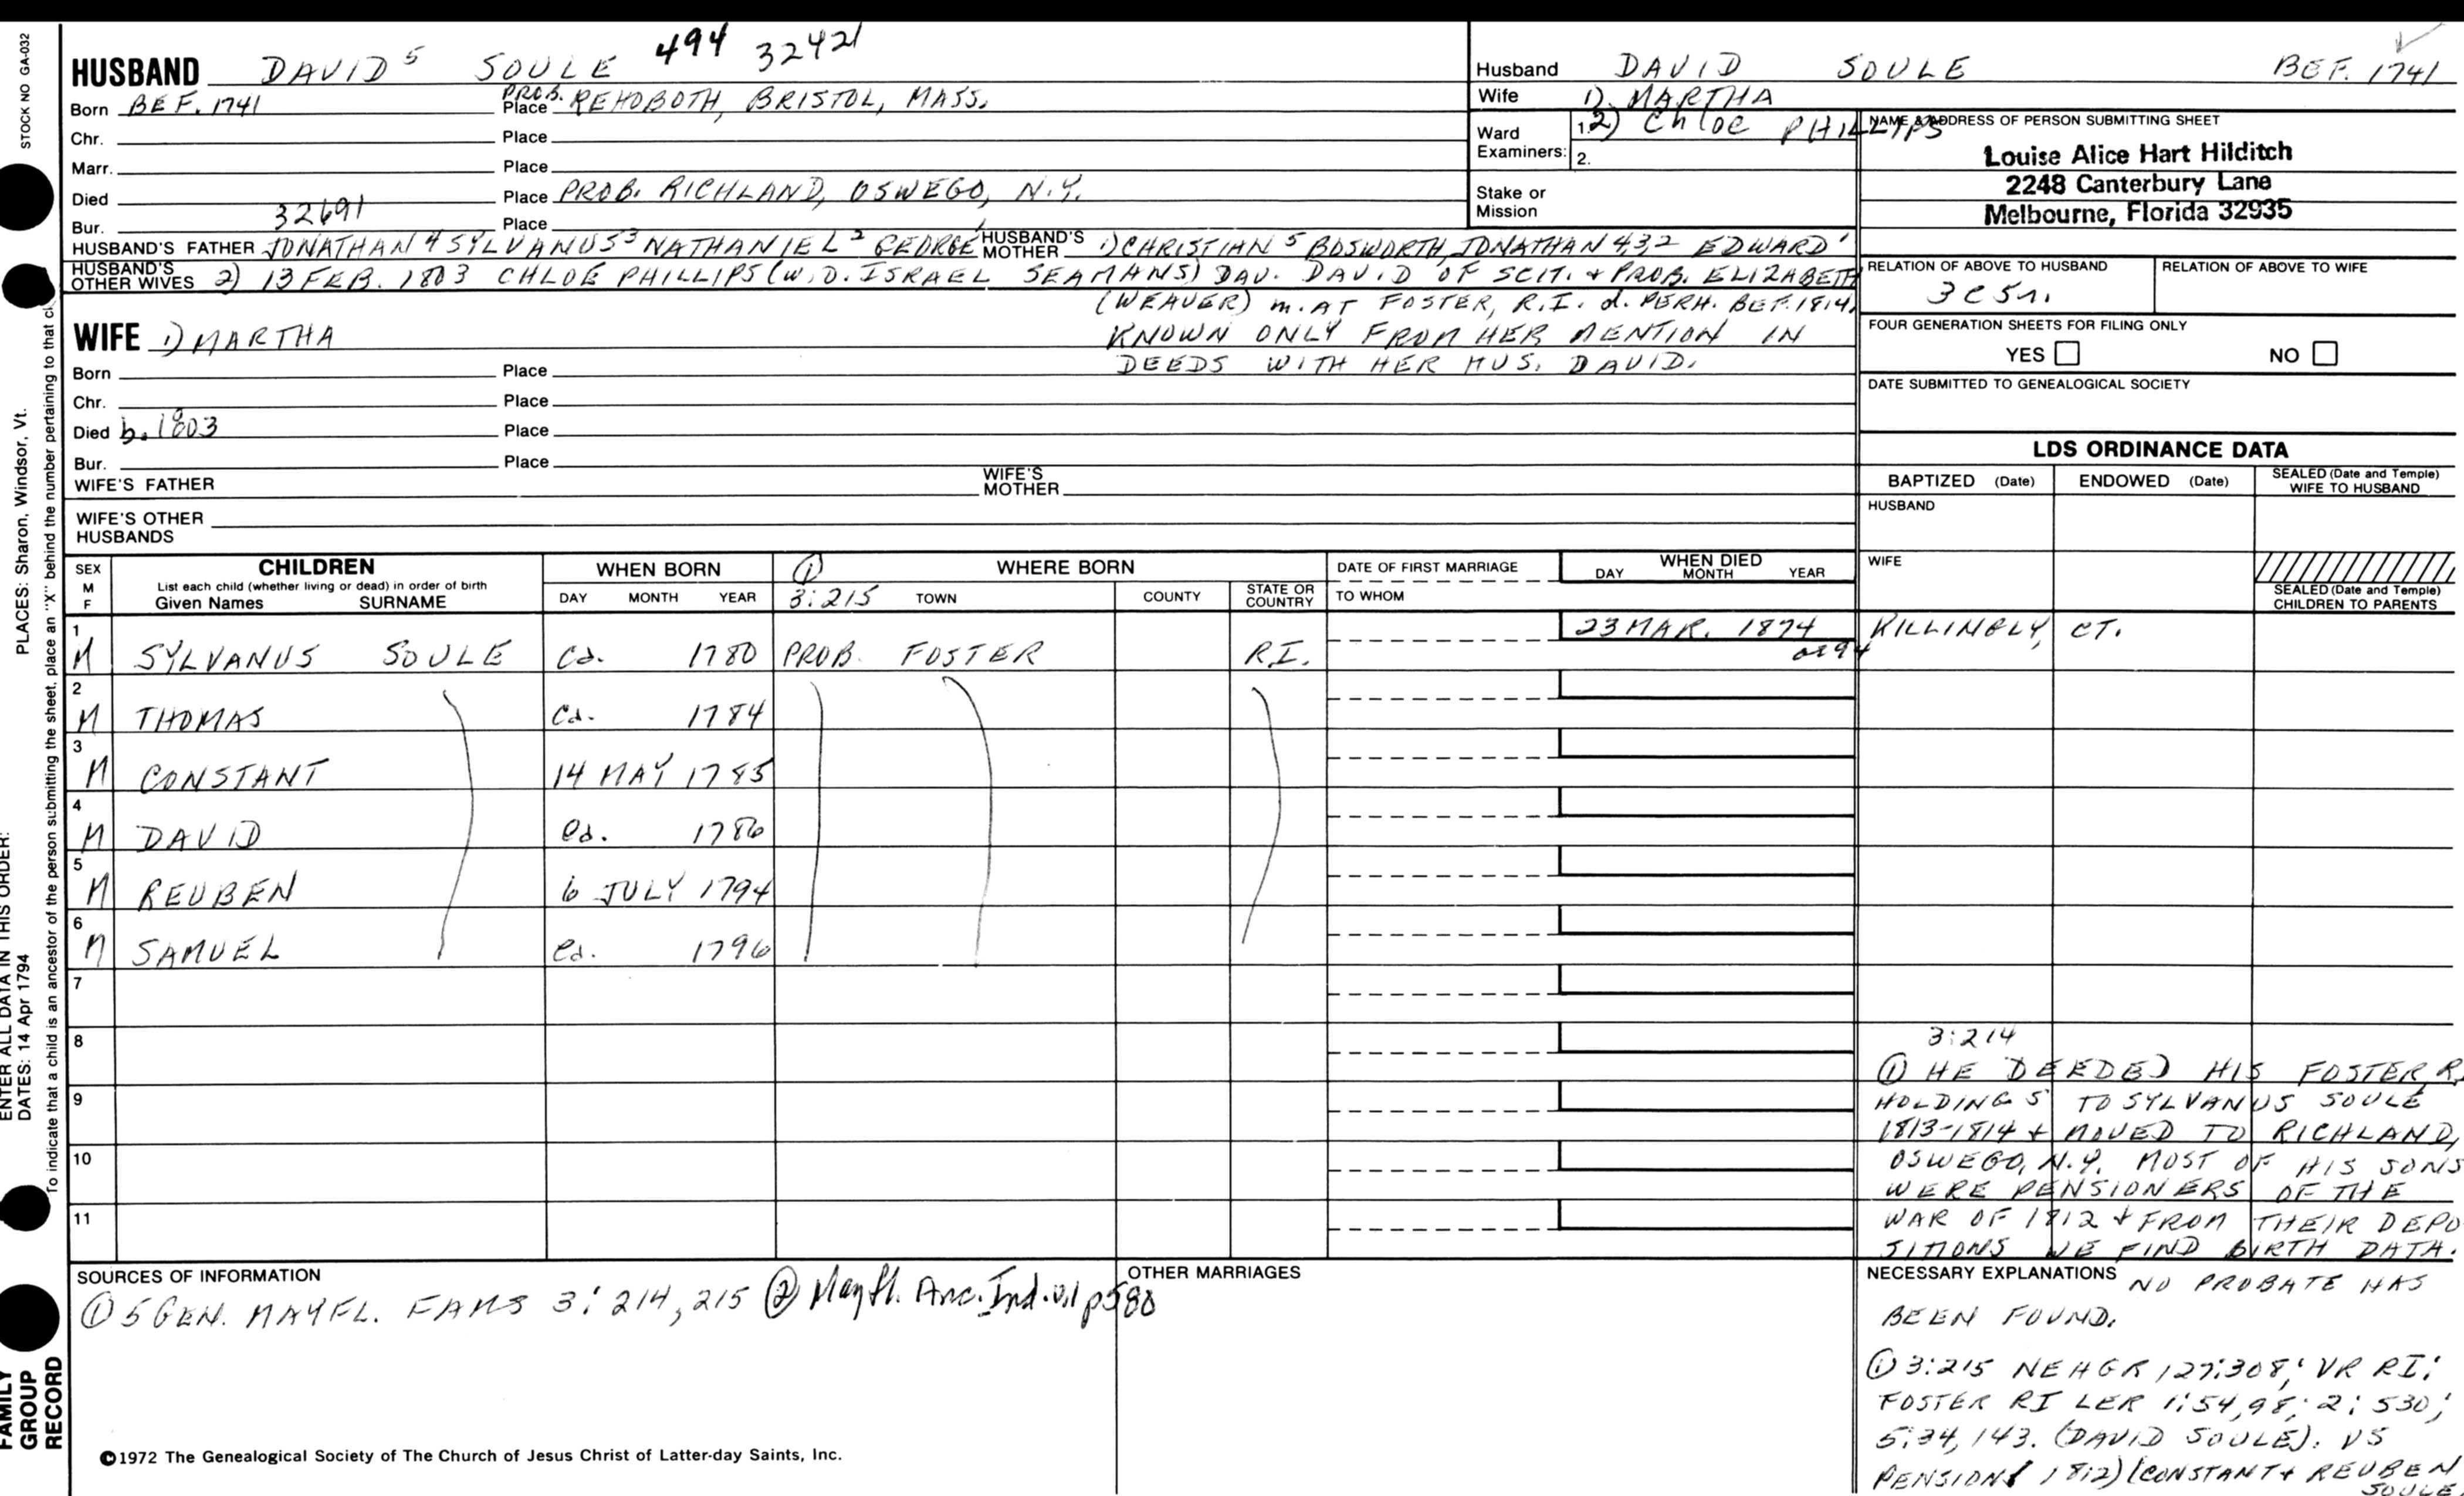 HUSBAND DAVID 5 SOULE 494 32421
Born BEF. 1741 PROB. Place REHOBOTH, BRISTOL, MASS.
Chr. Place
Marr. Place
Died Place PROB. RICHLAND, OSWEGO, N.Y.
Bur. 32691 Place
HUSBAND'S FATHER JONATHAN 4 SYLVANUS 3 NATHANIEL 2 GEORGE 1 HUSBAND'S MOTHER 1) CHRISTIAN 5 BOSWORTH, JONATHAN 4,3,2 EDWARD 1
HUSBAND'S OTHER WIVES 2) 13 FEB. 1803 CHLOE PHILLIPS (W.O. ISRAEL SEAMANS) DAU. DAVID OF SCIT. + PROB. ELIZABETH
(WEAVER) m. AT FOSTER, R.I. d. PERH. BEF. 1814.
WIFE 1) MARTHA KNOWN ONLY FROM HER MENTION IN
DEEDS WITH HER HUS. DAVID.
Born Place
Chr. Place
Died b. 1803 Place
Bur. Place
WIFE'S FATHER WIFE'S MOTHER
WIFE'S OTHER HUSBANDS
Husband DAVID SOULE BEF. 1741
Wife 1) MARTHA
Ward Examiners: 1. 2) Chloe PHILLIPS
2.
Stake or Mission
NAME & ADDRESS OF PERSON SUBMITTING SHEET
Louise Alice Hart Hilditch
2248 Canterbury Lane
Melbourne, Florida 32935
RELATION OF ABOVE TO HUSBAND RELATION OF ABOVE TO WIFE
3 c 5 r.
FOUR GENERATION SHEETS FOR FILING ONLY
YES NO
DATE SUBMITTED TO GENEALOGICAL SOCIETY
LDS ORDINANCE DATA
BAPTIZED (Date) ENDOWED (Date) SEALED (Date and Temple) WIFE TO HUSBAND
HUSBAND
WIFE
SEALED (Date and Temple) CHILDREN TO PARENTS
SEX M F CHILDREN WHEN BORN 1 WHERE BORN DATE OF FIRST MARRIAGE WHEN DIED
List each child (whether living or dead) in order of birth
Given Names SURNAME DAY MONTH YEAR 3:215 TOWN COUNTY STATE OR COUNTRY TO WHOM DAY MONTH YEAR
1 M SYLVANUS SOULE Ca. 1780 PROB. FOSTER R.I. 23 MAR. 1874 KILLINGLY, CT.
ae 94
2 M THOMAS Ca. 1784
3 M CONSTANT 14 MAY 1785
4 M DAVID Ca. 1786
5 M REUBEN 6 JULY 1794
6 M SAMUEL Ca. 1796
7
8
9
10
11
3:214
1 HE DEEDED HIS FOSTER, R.
HOLDINGS TO SYLVANUS SOULE
1813-1814 + MOVED TO RICHLAND,
OSWEGO, N.Y. MOST OF HIS SONS
WERE PENSIONERS OF THE
WAR OF 1812 + FROM THEIR DEPO
SITIONS WE FIND BIRTH DATA.
SOURCES OF INFORMATION
1 5 GEN. MAYFL. FAMS 3:214, 215 2 Mayfl. Anc. Ind. v.1 p580
OTHER MARRIAGES
NECESSARY EXPLANATIONS NO PROBATE HAS
BEEN FOUND.
1 3:215 NEHGR 127:308; VR RI;
FOSTER RI LER 1:54, 98; 2:530;
5:34, 143. (DAVID SOULE). US
PENSIONS 1812) (CONSTANT + REUBEN
SOULE
©1972 The Genealogical Society of The Church of Jesus Christ of Latter-day Saints, Inc.
STOCK NO GA-032
PLACES: Sharon, Windsor, Vt.
ENTER ALL DATA IN THIS ORDER:
DATES: 14 Apr 1794
To indicate that a child is an ancestor of the person submitting the sheet, place an "X" behind the number pertaining to that
FAMILY
GROUP
RECORD